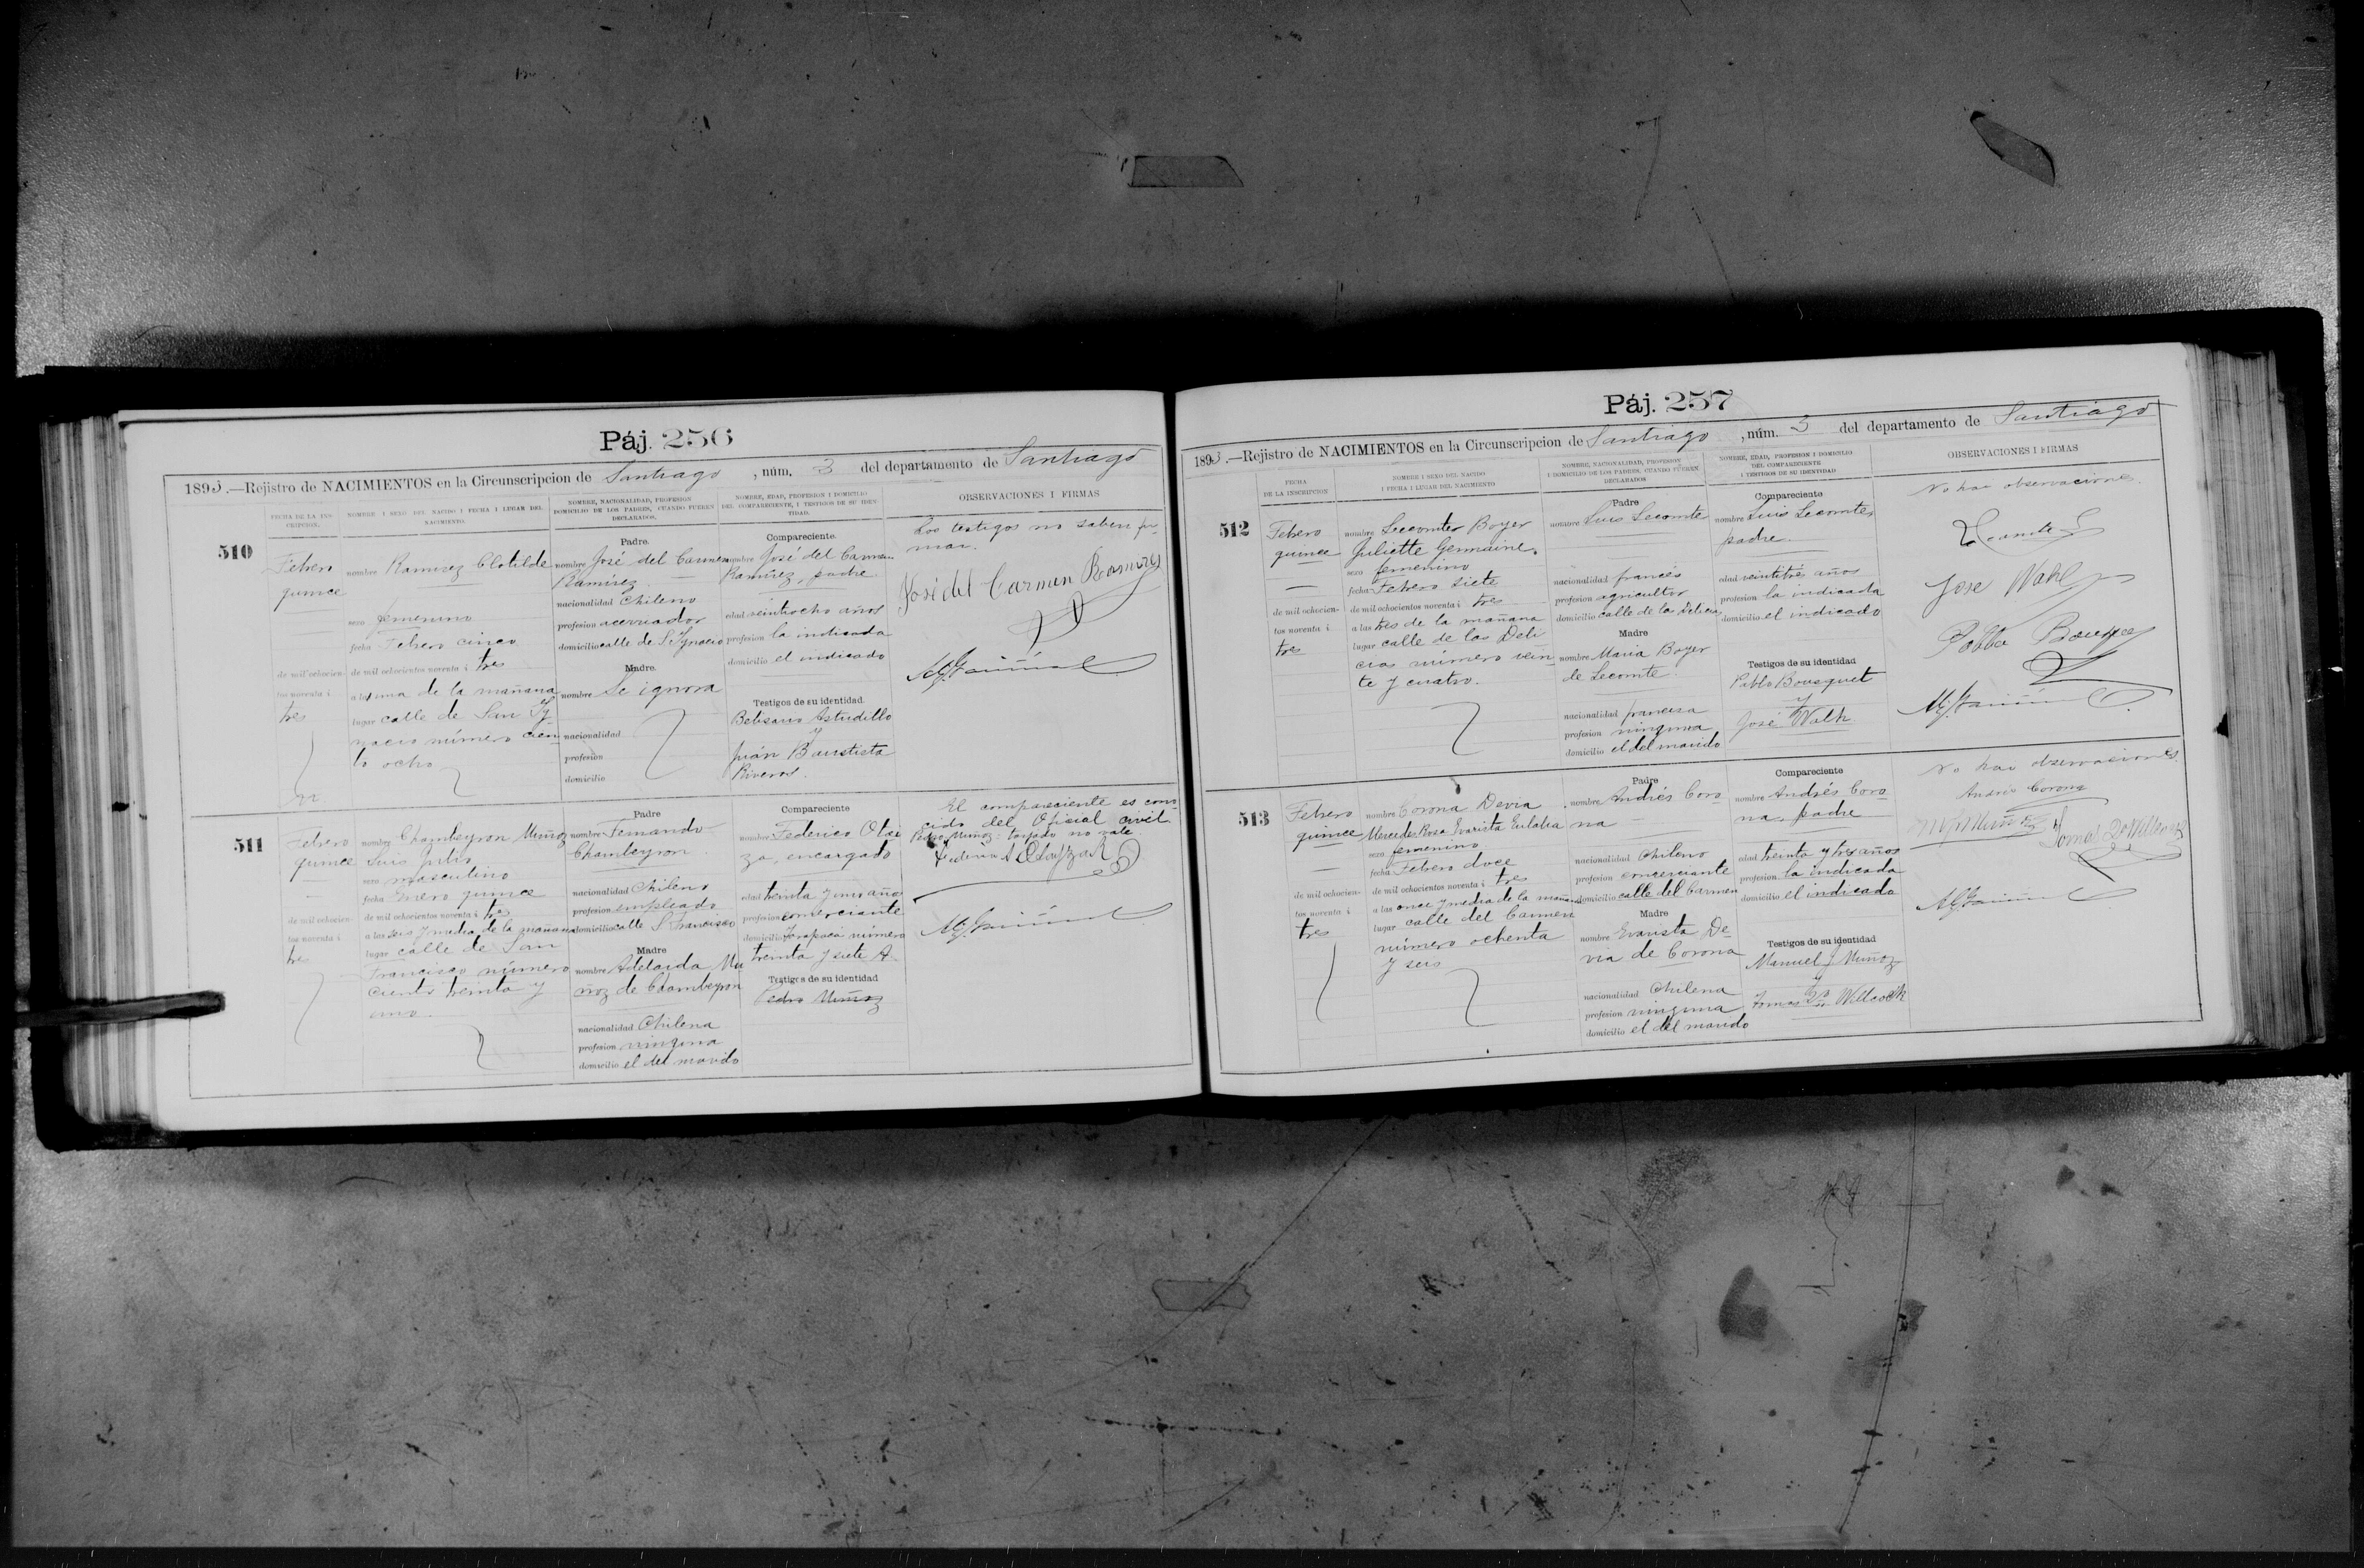 Páj. 256
1893.—Rejistro de NACIMIENTOS en la Circunscripcion de Santiago, núm. 3 del departamento de Santiago
FECHA DE LA INSCRIPCION.
NOMBRE I SEXO DEL NACIDO I FECHA I LUGAR DEL
NACIMIENTO.
NOMBRE, NACIONALIDAD, PROFESION
DOMICILIO DE LOS PADRES, CUANDO FUEREN
DECLARADOS.
NOMBRE, EDAD, PROFESION I DOMICILIO
DEL COMPARECIENTE, I TESTIGOS DE SU IDEN-
TIDAD.
OBSERVACIONES I FIRMAS
510
Febrero
quince
de mil ochocien-
tos noventa i
tres
nombre Ramirez Clotilde
sexo femenino
fecha Febrero cinco
de mil ochocientos noventa i tres
a la una de la mañana
lugar calle de San Ig-
nacio número cien-
to ocho
Padre.
nombre José del Carmen
Ramírez
nacionalidad Chileno
profesion
domicilio calle de S. Ygnacio
Madre.
nombre Se ignora
nacionalidad
profesion
domicilio
Compareciente.
nombre José del Carmen
Ramírez, padre
edad veintiocho años
profesion la indicada
domicilio el indicado
Testigos de su identidad.
Belisario Astudillo
y
Juán Baustista
Riveros.
Los testigos no saben fir-
mar.
José del Carmen Ramires
511
Febrero
quince
de mil ochocien-
tos noventa i
tres
nombre Chambeyron Muñoz
Luis Julio
sexo masculino
fecha Enero quince
de mil ochocientos noventa i tres
a las seis y media de la mañana
lugar calle de San
Francisco número
ciento treinta y
uno.
Padre
nombre Fernando
Chambeyron
nacionalidad Chileno
profesion empleado
domicilio calle S. Francisco
Madre
nombre Adelaida Mu
ñoz de Chambeyron
nacionalidad Chilena
profesion ninguna
domicilio el del marido
Compareciente
nombre Federico Olai
zo, encargado
edad treinta y un años
profesion comerciante
domicilio Tarapacá número
treinta y siete A
Testigos de su identidad
Pedro Muñoz
El compareciente es cono-
cido del Oficial civil.
Pedro Muñoz: tarjado no vale.
Páj. 257
1893.—Rejistro de NACIMIENTOS en la Circunscripcion de Santiago, núm. 3 del departamento de Santiago
FECHA
DE LA INSCRIPCION
NOMBRE I SEXO DEL NACIDO
I FECHA I LUGAR DEL NACIMIENTO
NOMBRE, NACIONALIDAD, PROFESION
I DOMICILIO DE LOS PADRES, CUANDO FUEREN
DECLARADOS
NOMBRE, EDAD, PROFESION I DOMICILIO
DEL COMPARECIENTE
I TESTIGOS DE SU IDENTIDAD
OBSERVACIONES I FIRMAS
512
Febrero
quince
de mil ochocien-
tos noventa i
tres
nombre Lecomte Boyer
Juliette Germaine.
sexo femenino
fecha Febrero siete
de mil ochocientos noventa i tres
a las tres de la mañana
lugar calle de las Deli
cias número vein
te y cuatro.
Padre
nombre Luis Lecomte
nacionalidad francés
profesion agricultor
domicilio calle de las Delicias
Madre
nombre Maria Boyer
de Lecomte.
nacionalidad francesa
profesion ninguna
domicilio el del marido
Compareciente
nombre Luis Lecomte,
padre.
edad veintitrés años
profesion la indicada
domicilio el indicado
Testigos de su identidad
Pablo Bousquet
y
José Walh.
No hai observaciones.
Jose Wahl
513
Febrero
quince
de mil ochocien-
tos noventa i
tres
nombre Corona Devia
Mercedes Rosa Evarista Eulalia
sexo femenino
fecha Febrero doce
de mil ochocientos noventa i tres
a las once y media de la mañana
lugar calle del Carmen
número ochenta
y seis
Padre
nombre Andrés Coro
na
nacionalidad Chileno
profesion comerciante
domicilio calle del Carmen
Madre
nombre Evarista De-
via de Corona
nacionalidad Chilena
profesion ninguna
domicilio el del marido
Compareciente
nombre Andrés Coro
na, padre
edad treinta y tres años
profesion la indicada
domicilio el indicado
Testigos de su identidad
Manuel J Muñoz
y
Tomas 2º Willcock
No hai observaciones.
Andrés Corona